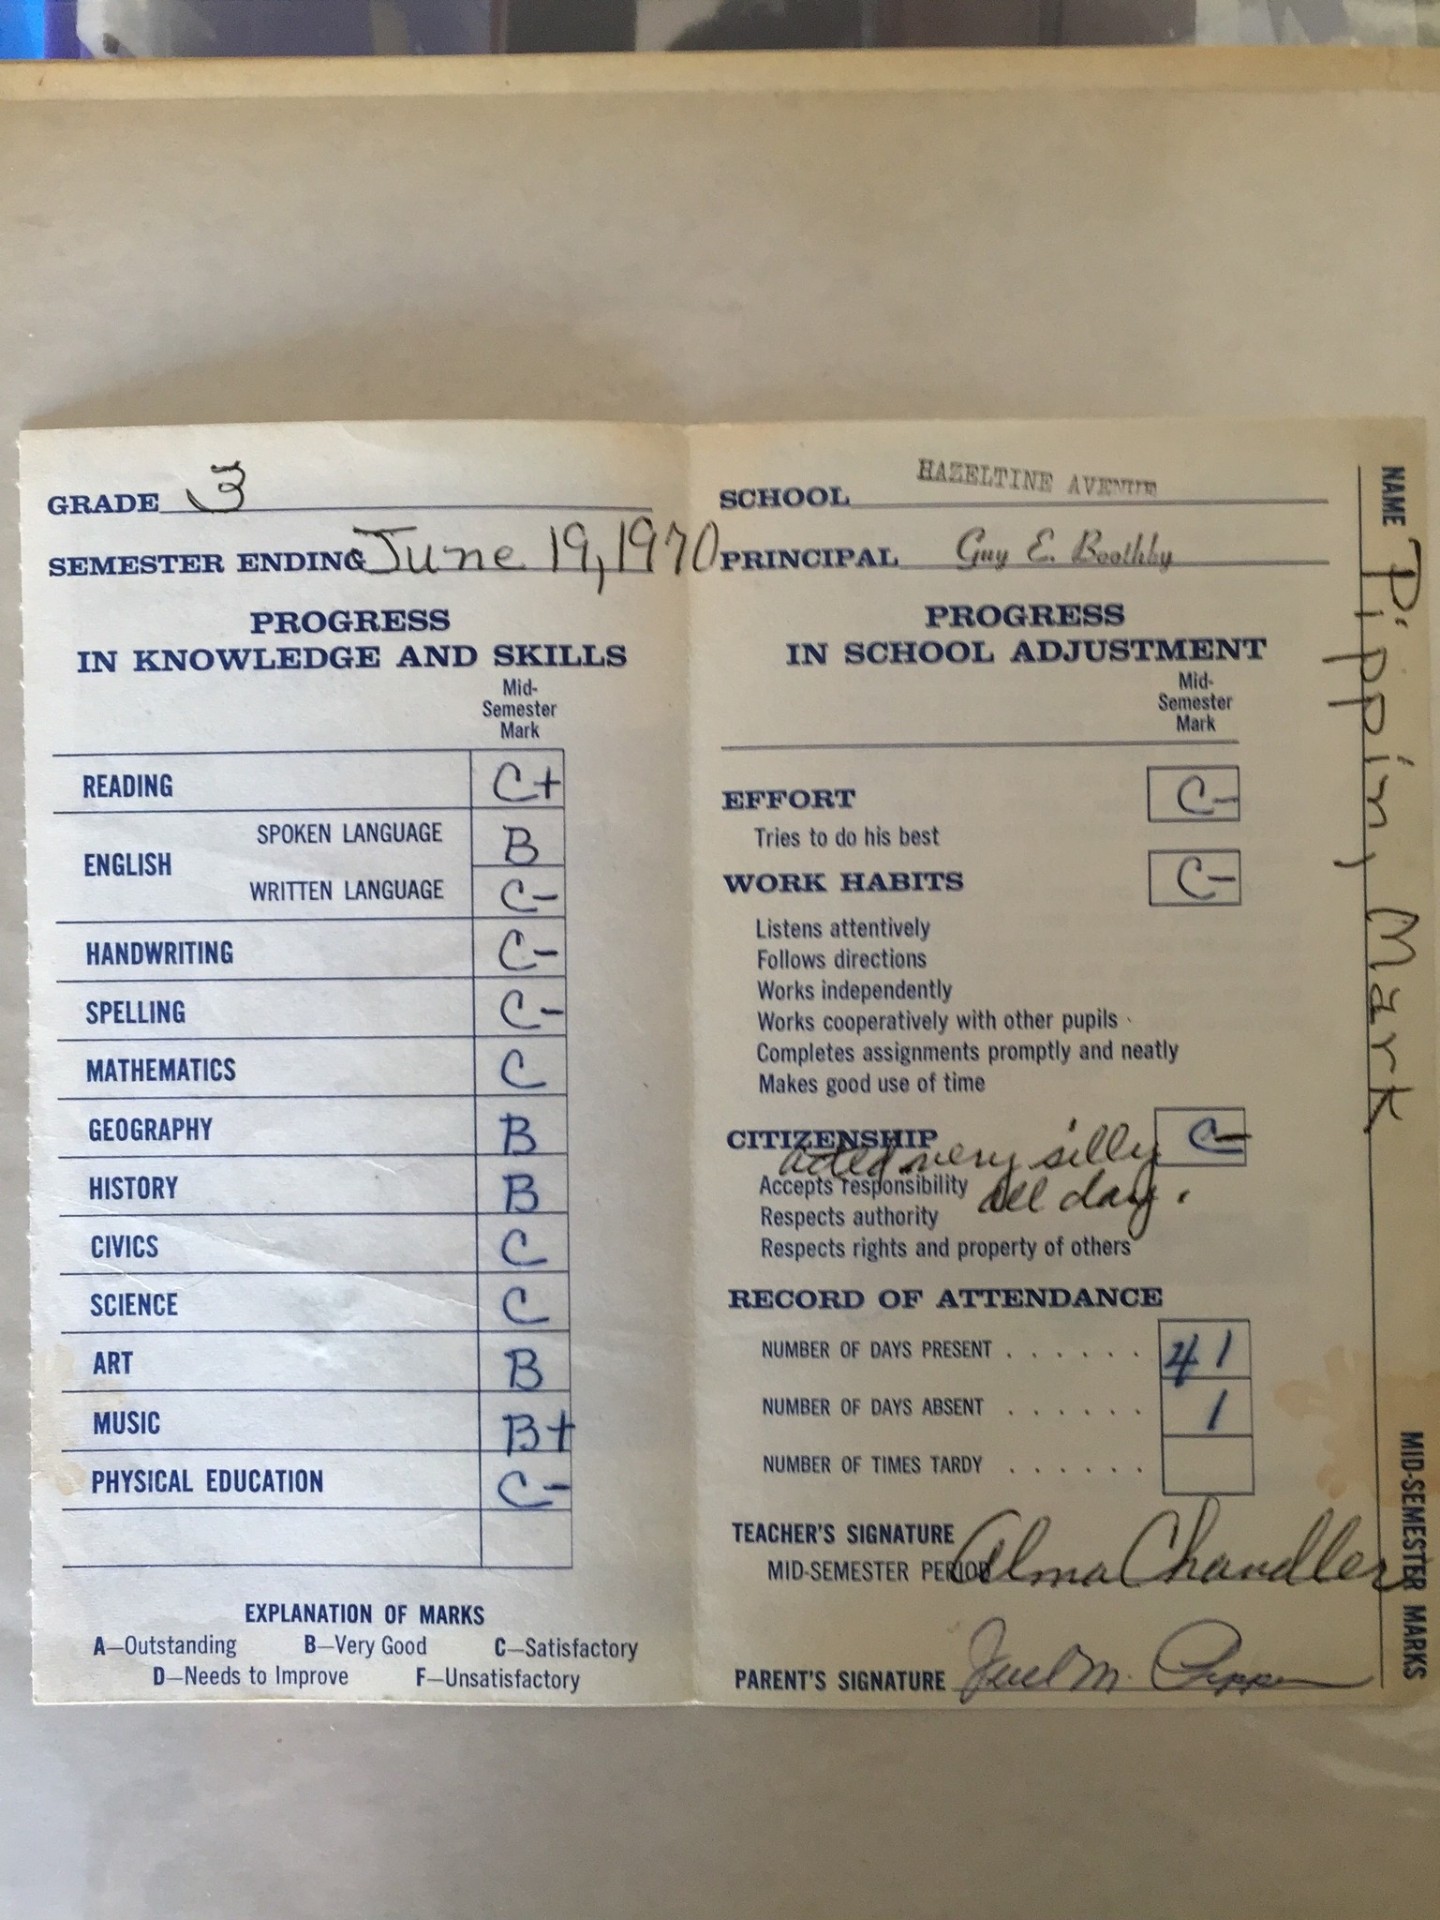 GRADE 3
SEMESTER ENDING June 19, 1970
PROGRESS
IN KNOWLEDGE AND SKILLS
Mid-
Semester
Mark
READING C+
ENGLISH
SPOKEN LANGUAGE B
WRITTEN LANGUAGE C-
HANDWRITING C-
SPELLING C-
MATHEMATICS C
GEOGRAPHY B
HISTORY B
CIVICS C
SCIENCE C
ART B
MUSIC B+
PHYSICAL EDUCATION C-
EXPLANATION OF MARKS
A—Outstanding B—Very Good C—Satisfactory
D—Needs to Improve F—Unsatisfactory
SCHOOL HAZELTINE AVENUE
PRINCIPAL Guy E. Boothby
PROGRESS
IN SCHOOL ADJUSTMENT
Mid-
Semester
Mark
EFFORT C-
Tries to do his best
WORK HABITS C-
Listens attentively
Follows directions
Works independently
Works cooperatively with other pupils
Completes assignments promptly and neatly
Makes good use of time
CITIZENSHIP C-
acted very silly
Accepts responsibility all day.
Respects authority
Respects rights and property of others
RECORD OF ATTENDANCE
NUMBER OF DAYS PRESENT . . . . . . 41
NUMBER OF DAYS ABSENT . . . . . . 1
NUMBER OF TIMES TARDY . . . . . .
TEACHER'S SIGNATURE
MID-SEMESTER PERIOD Alma Chandler
PARENT'S SIGNATURE M.
NAME Pippin, Mark
MID-SEMESTER MARKS